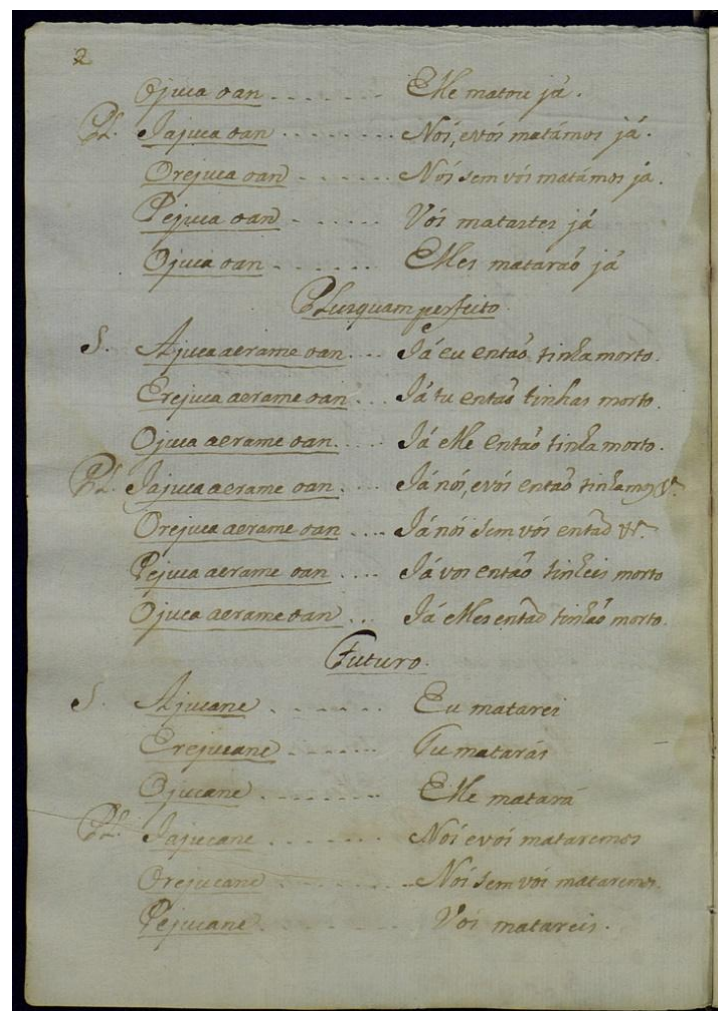 2
Ojuca oan - - - - - - - Elle matou já.
Pl. Jajuca oan - - - - - - - Nós, evós matámos já.
Orejuca oan - - - - - - Nós sem vós matámos já.
Pejuca oan - - - - - - Vós matastes já
Ojuca oan - - - - - - Elles mataraõ já
Plusquam perfeito.
S. Ajuca aerame oan - - - Já eu entaõ tinha morto.
Erejuca aerame oan - - - Já tu entaõ tinhas morto.
Ojuca aerame oan - - - - Já elle entaõ tinha morto.
Pl. Jajuca aerame oan - - - Já nós, evós entaõ tinhamos &.
Orejuca aerame oan - - - - Já nós sem vós entaõ &.
Pejuca aerame oan - - - - Já vos entaõ tinheis morto
Ojuca aerame oan - - - Já elles entaõ tinhaõ morto.
Futuro.
S. Ajucane - - - - - - Eu matarei
Erejucane - - - - - - Tu matarás
Ojucane - - - - - - - - Elle matará
Pl. Jajucane - - - - - - - Nós evós mataremos
Orejucane - - - - - - - - Nós sem vós mataremos.
Pejucane - - - - - - - Vós matareis.